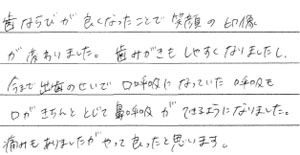 歯ならびが良くなったことで笑顔の印像
が変わりました。歯みがきもしやすくなりましたし、
今まで出歯のせいで口呼吸になっていた呼吸も
口がきちんととじて鼻呼吸ができるようになりました。
痛みもありましたがやって良ったと思います。